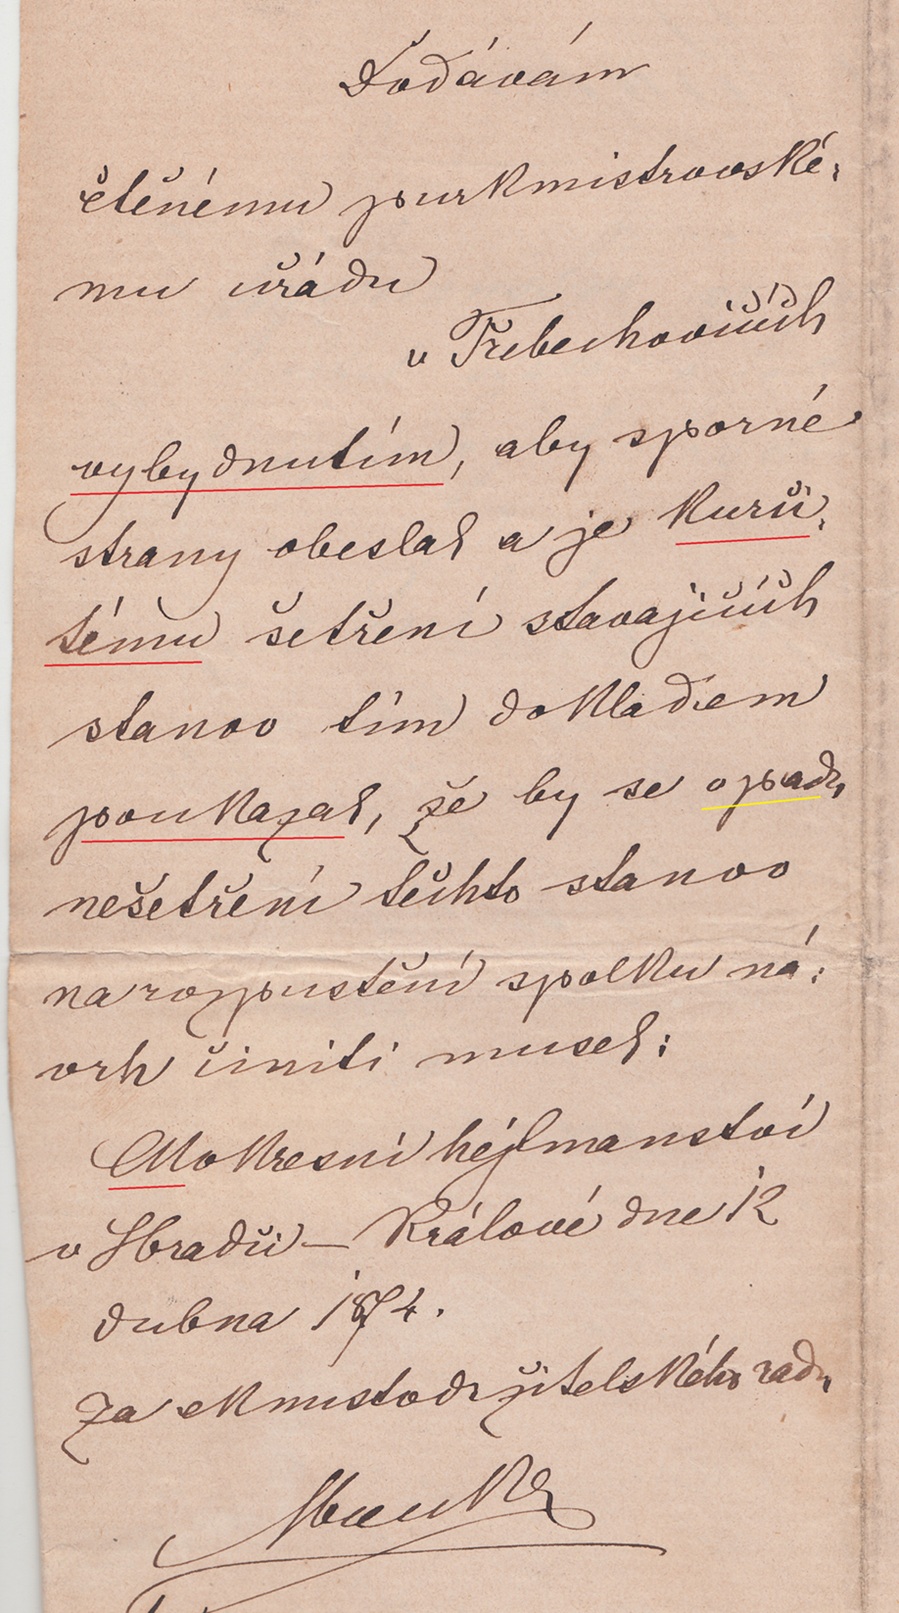 Dodávám
ctěnému purkmistrovské-
mu úřadu
v Třebechovicích
vybydnutím, aby sporné
strany obeslal a je kurů-
tému šetření stávajících
stanov tím dokladem
poukázal, že by se
nešetření těchto stanov
na rozpustění spolku ná-
vrh činiti musel:
okresní hejtmanství
v Hradci – Králové dne 12
dubna 1874.
Za ck místodržitelského radu